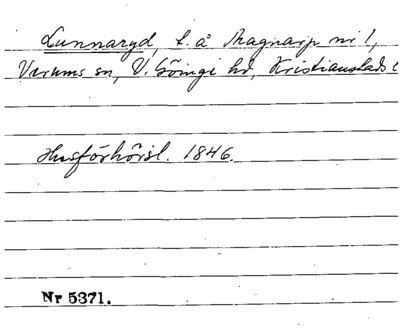 Lunnaryd, t. å Magnarp nr 1,
Verums sn, V. Göinge hd, Kristianstads l
Husförhörsl. 1846.
Nr 5371.